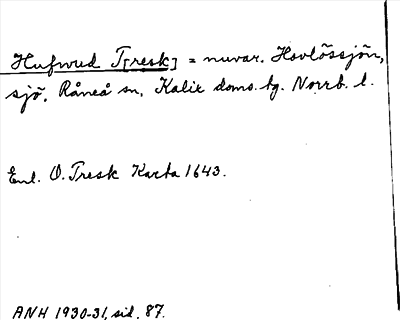 Hufwud T[resk] = nuvar. Hovlössjön,
sjö, Råneå sn, Kalix doms. tg. Norrb. l.
Enl. O. Tresk Karta 1643.
ANH 1930-31, sid. 87.